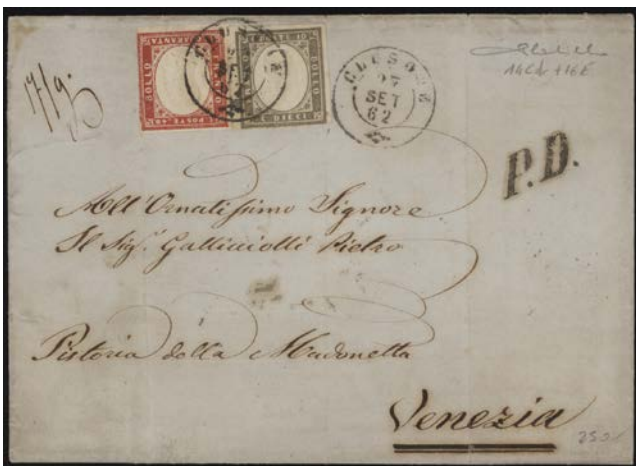 BOLLO QUARANTA C. POSTE
BOLLO C. DIECI
CLUSONE
27
SET
62
17/9.
14Cdr + 16E
P.D.
All'Ornatissimo Signore
Il Sig.r Galliciolli Pietro
Pistoria della Madonetta
Venezia
250